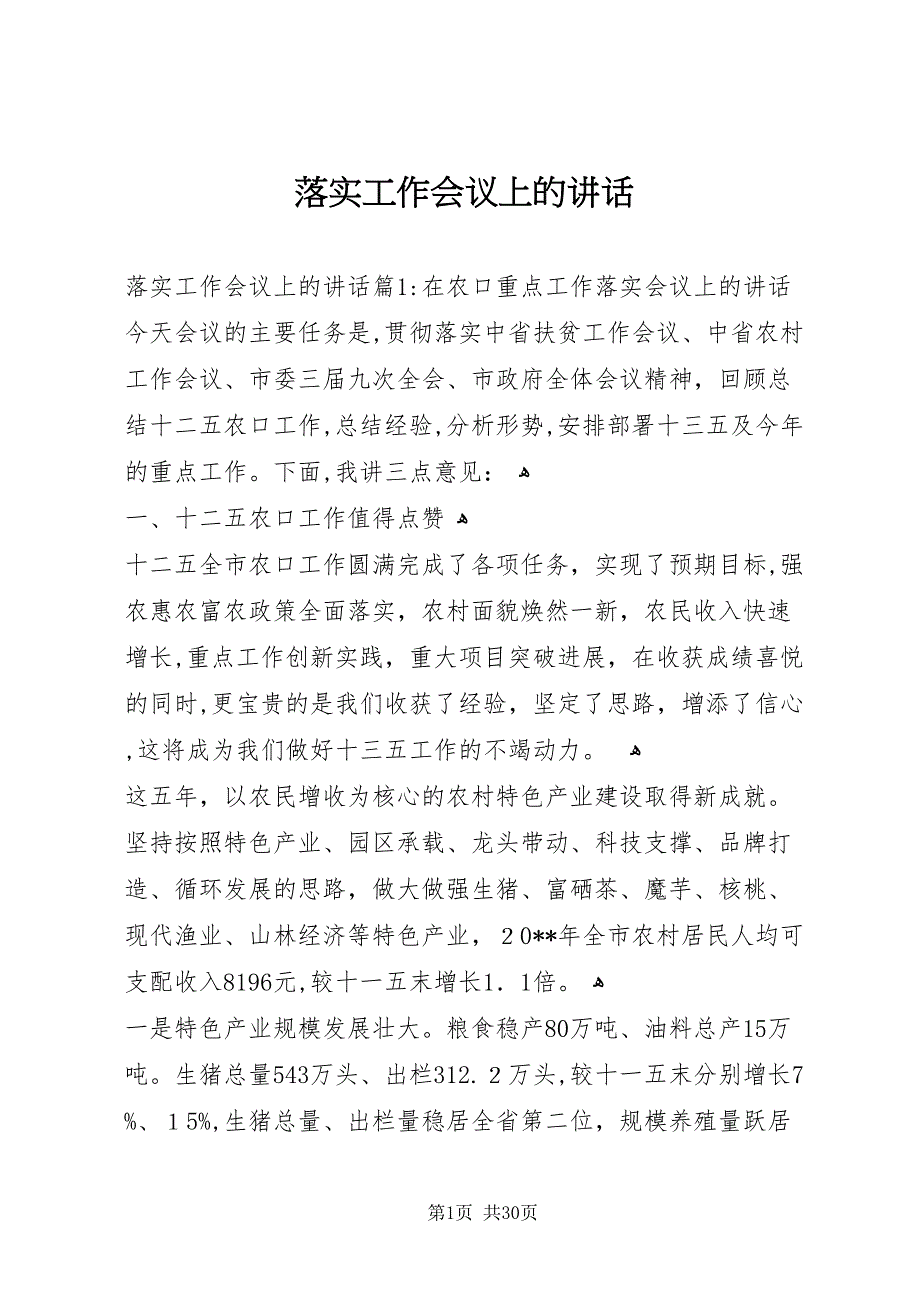 落实工作会议上的讲话
落实工作会议上的讲话篇1:在农口重点工作落实会议上的讲话
今天会议的主要任务是,贯彻落实中省扶贫工作会议、中省农村
工作会议、市委三届九次全会、市政府全体会议精神，回顾总
结十二五农口工作,总结经验,分析形势,安排部署十三五及今年
的重点工作。下面,我讲三点意见： ﻫ
一、十二五农口工作值得点赞 ﻫ
十二五全市农口工作圆满完成了各项任务，实现了预期目标,强
农惠农富农政策全面落实，农村面貌焕然一新，农民收入快速
增长,重点工作创新实践，重大项目突破进展，在收获成绩喜悦
的同时,更宝贵的是我们收获了经验，坚定了思路，增添了信心
,这将成为我们做好十三五工作的不竭动力。 ﻫ
这五年，以农民增收为核心的农村特色产业建设取得新成就。
坚持按照特色产业、园区承载、龙头带动、科技支撑、品牌打
造、循环发展的思路，做大做强生猪、富硒茶、魔芋、核桃、
现代渔业、山林经济等特色产业，２0**年全市农村居民人均可
支配收入8196元,较十一五末增长1．1倍。ﻫ
一是特色产业规模发展壮大。粮食稳产80万吨、油料总产15万
吨。生猪总量543万头、出栏312.２万头,较十一五末分别增长7
%、１5%,生猪总量、出栏量稳居全省第二位，规模养殖量跃居
第1页 共30页